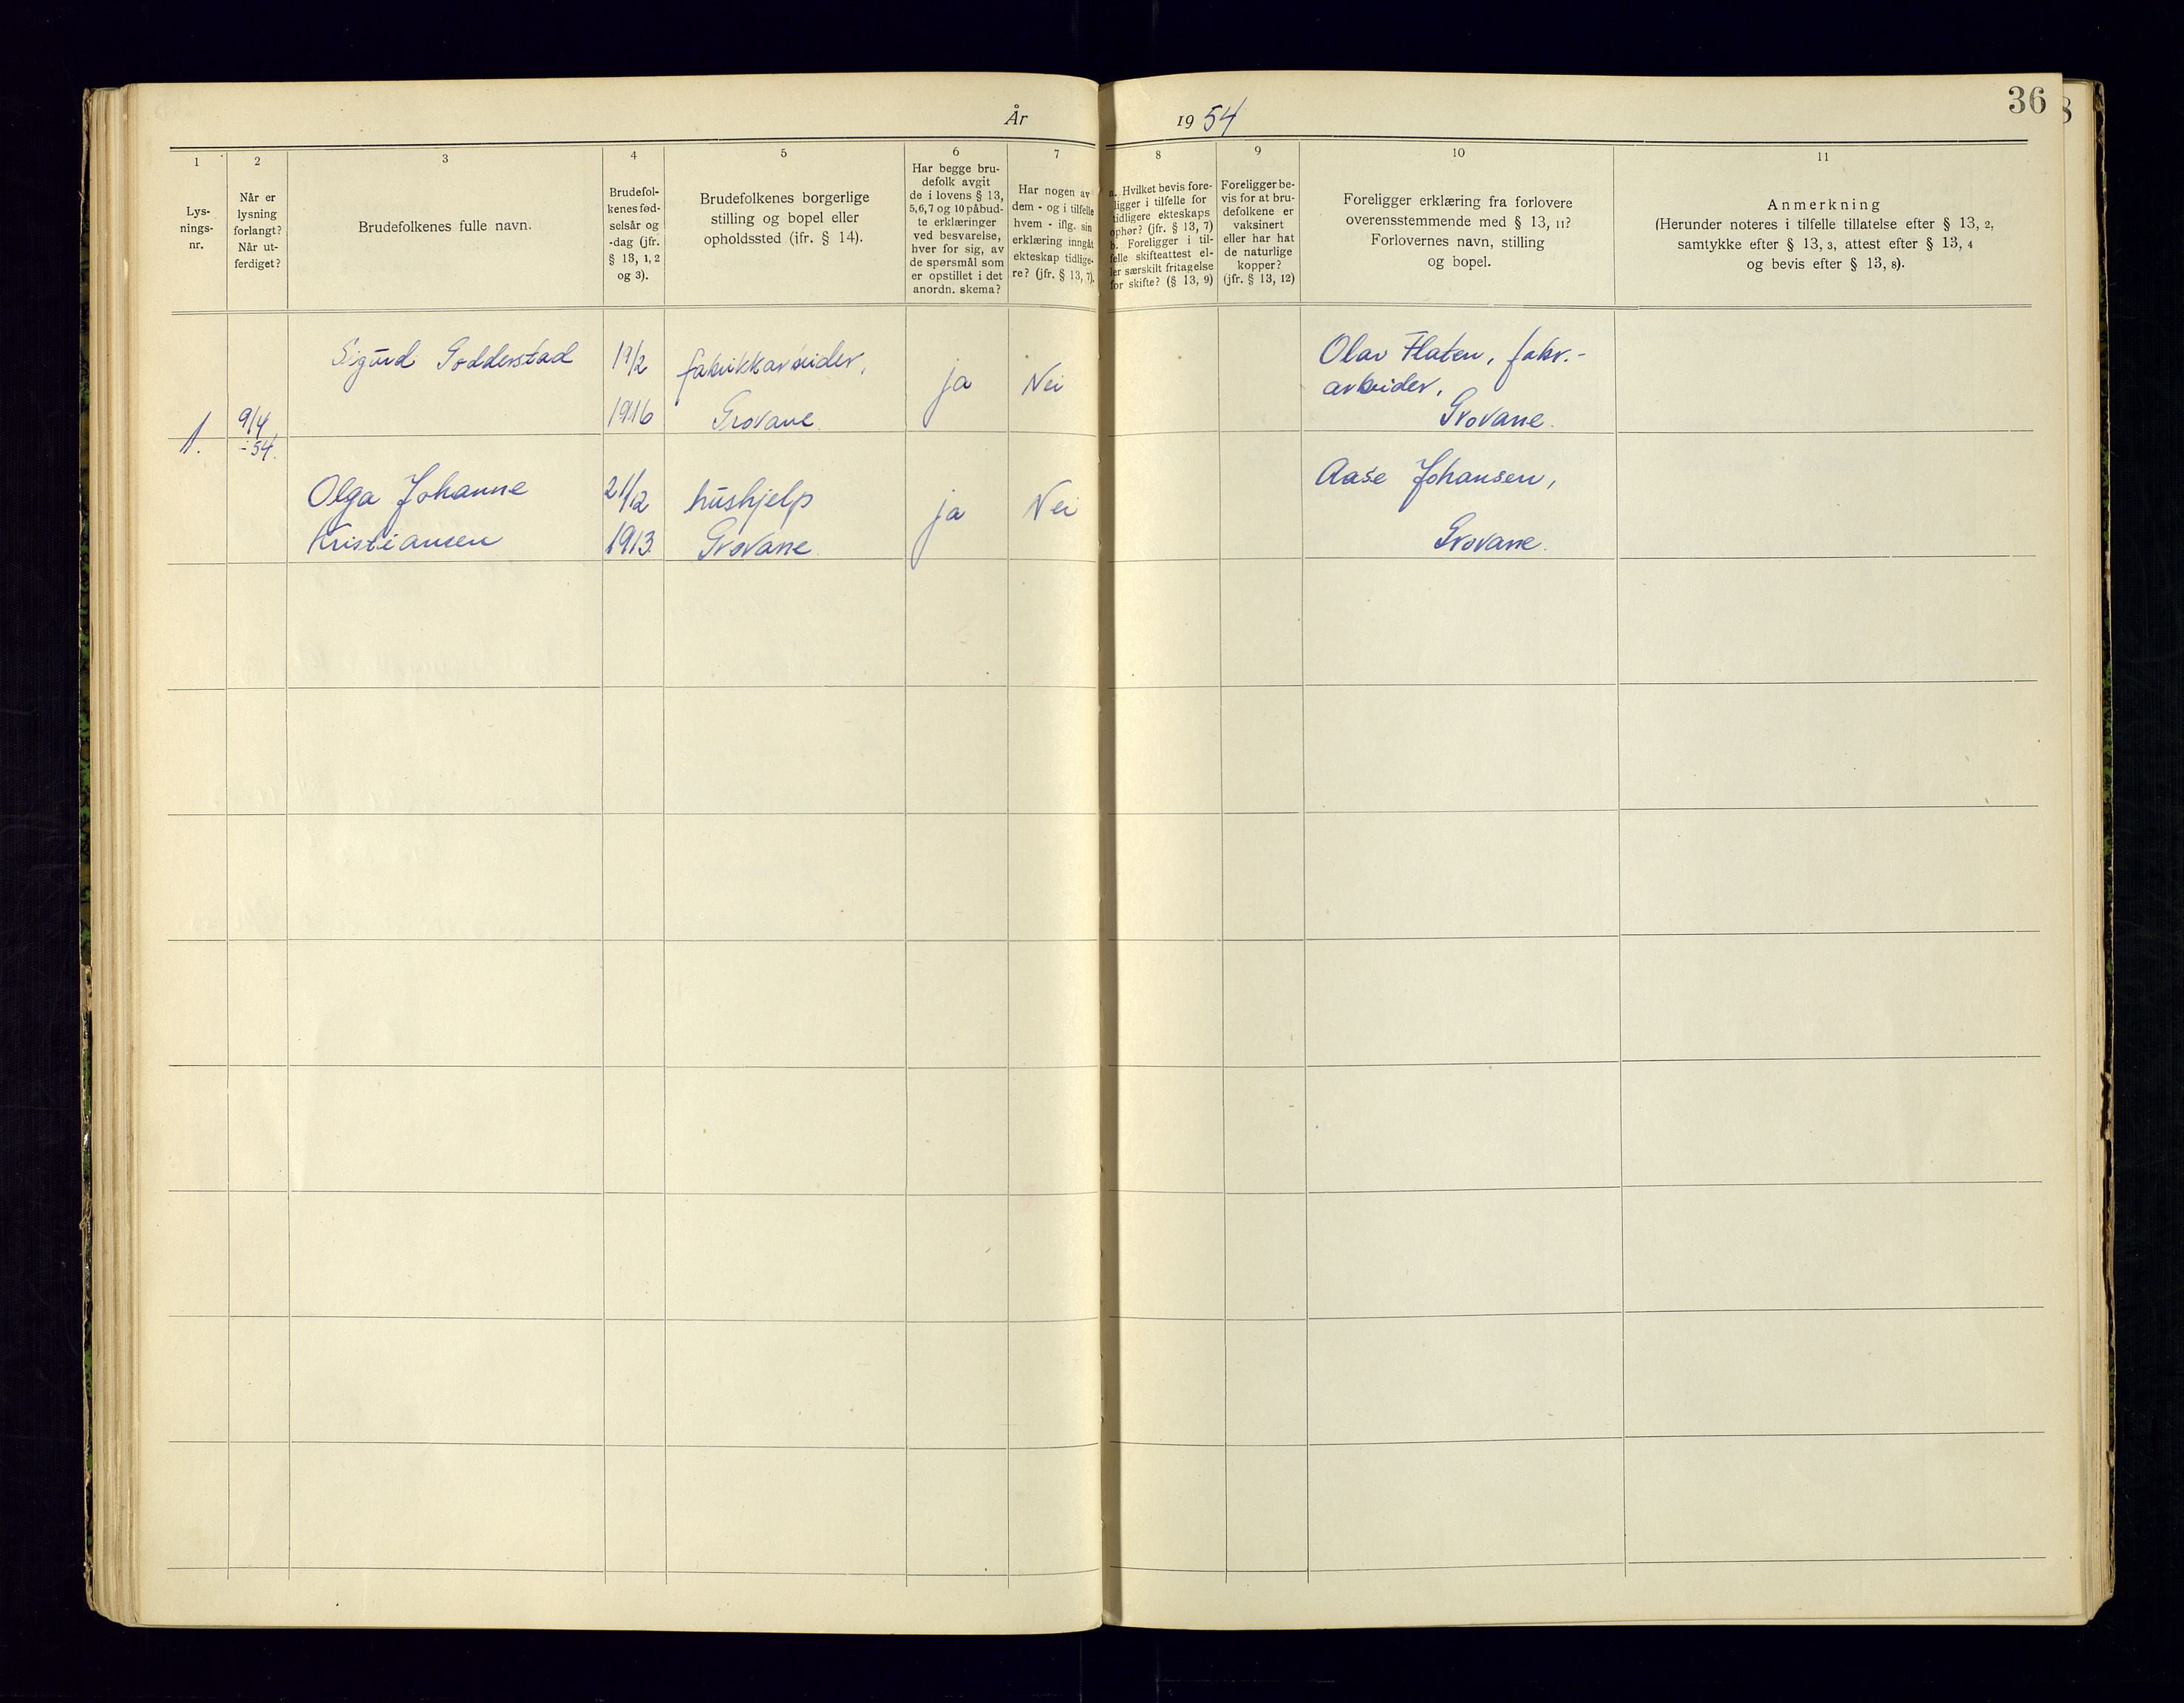 36
8
År 1954
1
Lys-
nings-
nr.
2
Når er
lysning
forlangt?
Når ut-
ferdiget?
3
Brudefolkenes fulle navn.
4
Brudefol-
kenes fød-
selsår og
-dag (jfr.
§ 13, 1, 2
og 3).
5
Brudefolkenes borgerlige
stilling og bopel eller
opholdssted (ifr. § 14).
6
Har begge bru-
defolk avgit
de i lovens § 13,
5,6,7 og 10 påbud-
te erklæringer
ved besvarelse,
hver for sig, av
de spørsmål som
er opstillet i det
anordn. skema?
7
Har nogen av
dem - og i tilfelle
hvem - iflg. sin
erklæring inngåt
ekteskap tidlige-
re? (jfr. § 13, 7).
8
a. Hvilket bevis fore-
ligger i tilfelle for
tidligere ekteskaps
ophør? (jfr. § 13, 7)
b. Foreligger i til-
felle skifteattest el-
ler særskilt fritagelse
for skifte? (§ 13, 9)
9
Foreligger be-
vis for at bru-
defolkene er
vaksinert
eller har hat
de naturlige
kopper?
(jfr. § 13, 12)
10
Foreligger erklæring fra forlovere
overensstemmende med § 13, 11?
Forlovernes navn, stilling
og bopel.
11
Anmerkning
(Herunder noteres i tilfelle tillatelse efter § 13, 2,
samtykke efter § 13, 3, attest efter § 13, 4
og bevis efter § 13, 8).
1.
9/4
-54.
Sigurd Godderstad
1916
fabrikkarbeider,
Grovane.
ja
Nei
Olav Flaten, fabr.-
arbeider,
Grovane.
Olga Johanne
Kristiansen
21/12
1913.
hushjelp
Grovane.
ja
Nei
Aase Johansen,
Grovane.